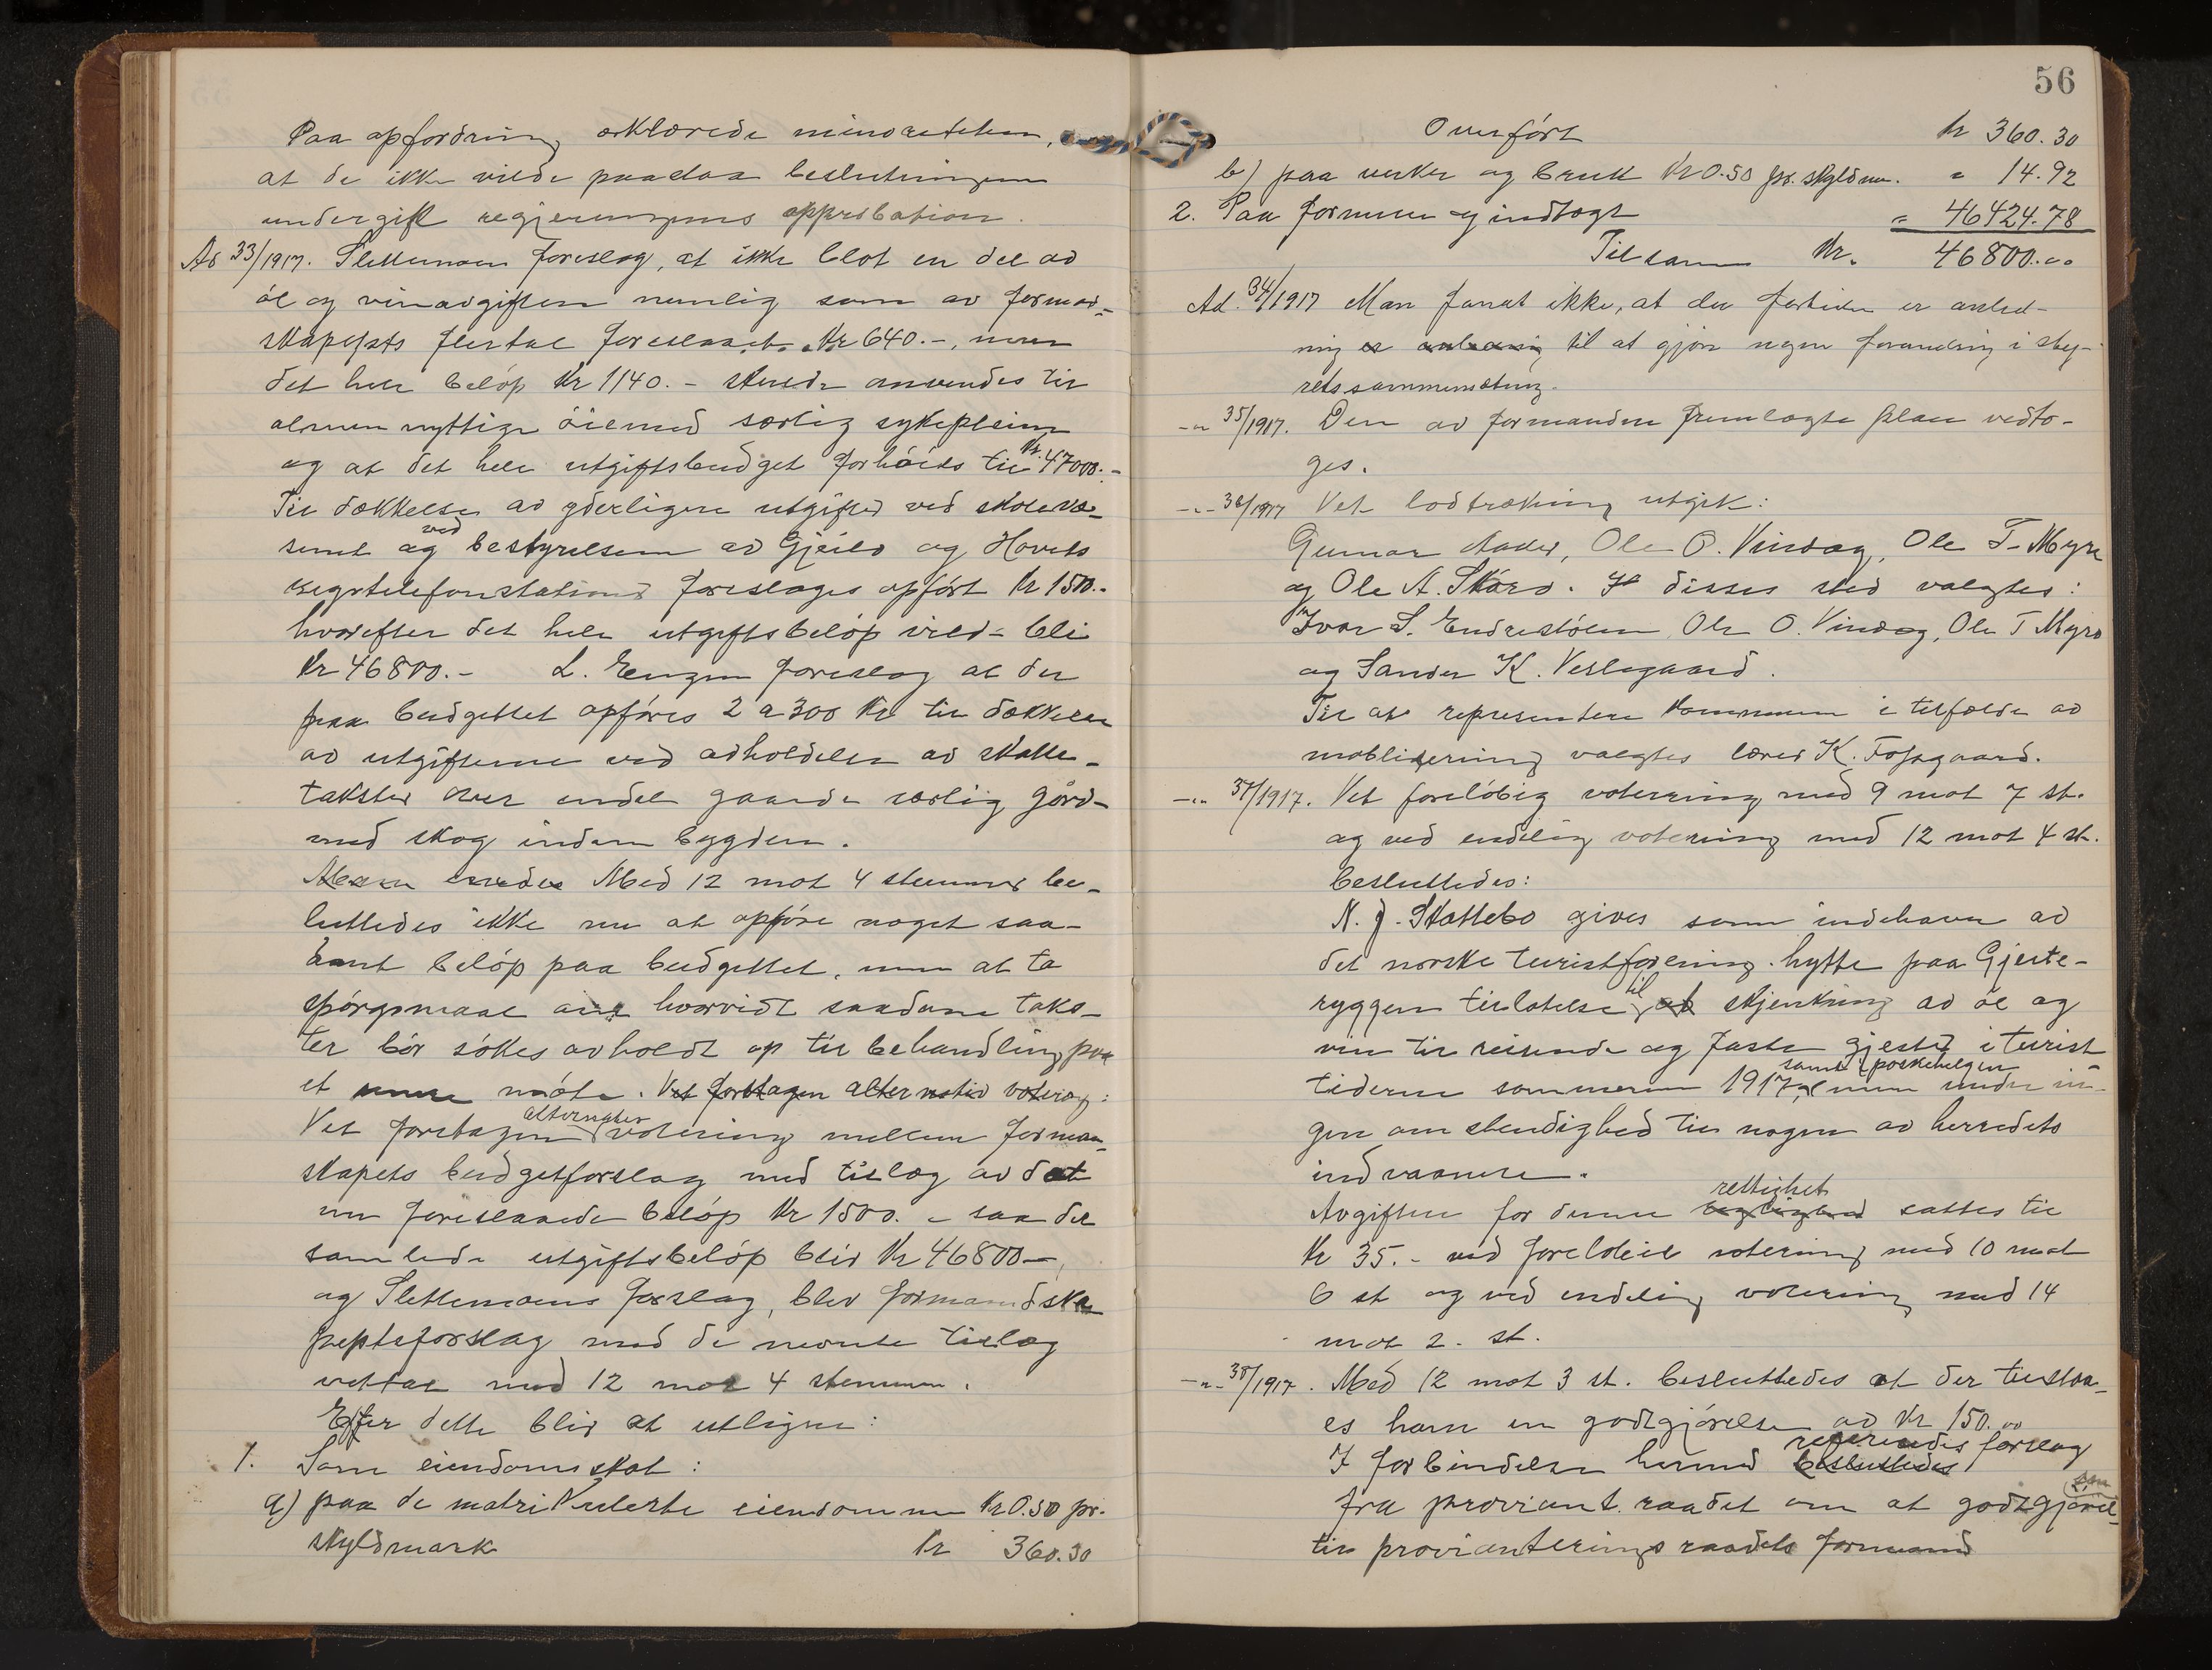 Paa opfordring erklærede minoriteten,
at de ikke vilde paadra beslutningen
undergift regjeringens approbation.
Ad 33/1917. Slettemoen foreslog, at ikke blot en del av
øl og vinavgiften nemlig som av formand-
skapets flertal foreslaaet Kr 640.-, men
det hele beløp Kr 1140.- skulde anvendes til
almennyttige øiemed særlig sykepleien
og at det hele utgiftsbudget forhøies til Kr. 47000.-
Til dækkelse av yderligere utgifter ved skolevæ-
senet og ved bestyrelsen av Gjeilo og Hovets
rigstelefonstationer foreslages opført Kr 1500.-
hvorefter det hele utgiftsbeløp vild- bli
Kr 46800.- L. Engen foreslog at der
paa budgettet opføres 2 a 300 Kr til dækkelse
av utgifterne ved avholdelse av skatte-
takster over endel gaarde særlig gård-
med skog inden bygden.
Med 12 mot 4 stemmer be-
luttedes ikke nu at opføre noget saa-
dant beløp paa budgettet, men at ta
spørgsmaal om hvorvidt saadane taks-
ter bør søkes avholdt op til behandling paa
et møte. Vet fortagen alternativ votering:
Vet foretagen alternativ votering mellem forman-
skapets budgetforslag med tillæg av det
nu foreslaaede beløp Kr 1500.- saa det
samlede utgiftsbeløp blir Kr 46800-,
og Slettemoens forslag, blev formandska
petsforslag med de nævnte tillæg
vettat med 12 mot 4 stemmer.
Efter dette blir at utligne:
1. Som eiendomsskat:
a) paa de matrikulerte eiendomme Kr 0.50 pr.
skyldmark Kr 360.30
56
Overført Kr 360.30
b) paa verker og bruk Kr 0.50 pr. skyldm. " 14.92
2. Paa formue og indtægt " 46424.78
Tilsam Kr. 46800.00
Ad. 34/1917 Man fandt ikke, at der fortiden er anled-
ning er anledning til at gjøre nogen forandring i sty-
rets sammensætning.
-"- 35/1917. Den av formanden fremlagte plan vedto-
ges.
-"- 36/1917 Vet lodtrækning utgik:
Gunnar Aaker, Ole O. Vindæg, Ole T. Myro
og Ole A. Skøro. I disses sted valgtes:
Ivar S. Endrestølen, Ole O. Vindeg, Ole T Myro
og Sander K. Veslegaard.
Til at representere kommunen i tilfælde av
moblisering valgtes lærer K. Fossgaard.
-"- 37/1917. Vet foreløbig votering med 9 mot 7 st.
og ved endelig votering med 12 mot 4 st.
besluttedes:
N. J. Skattebo gives som indehaver av
det norske turistforening. hytte paa Gjeite-
ryggen tillatelse til at skjenkning av øl og
vin til reisende og faste gjester i turist
tiderne sommeren 1917, samt i påskehelgen men under in-
gen omstendighed til nogen av herredets
indvaanere.
Avgiften for denne rettighet sattes til
Kr 35.- ved foreløbig votering med 10 mot
6 st og ved endelig votering med 14
mot 2. st.
-"- 38/1917. Med 12 mot 3 st. besluttedes at der tilstaa-
es ham en godtgjørelse av Kr 150.00
I forbindelse hermed besluttedes refereredes forslag
fra proviant.raadet om at godtgjørel-
sen
til provianteringsraadets formand